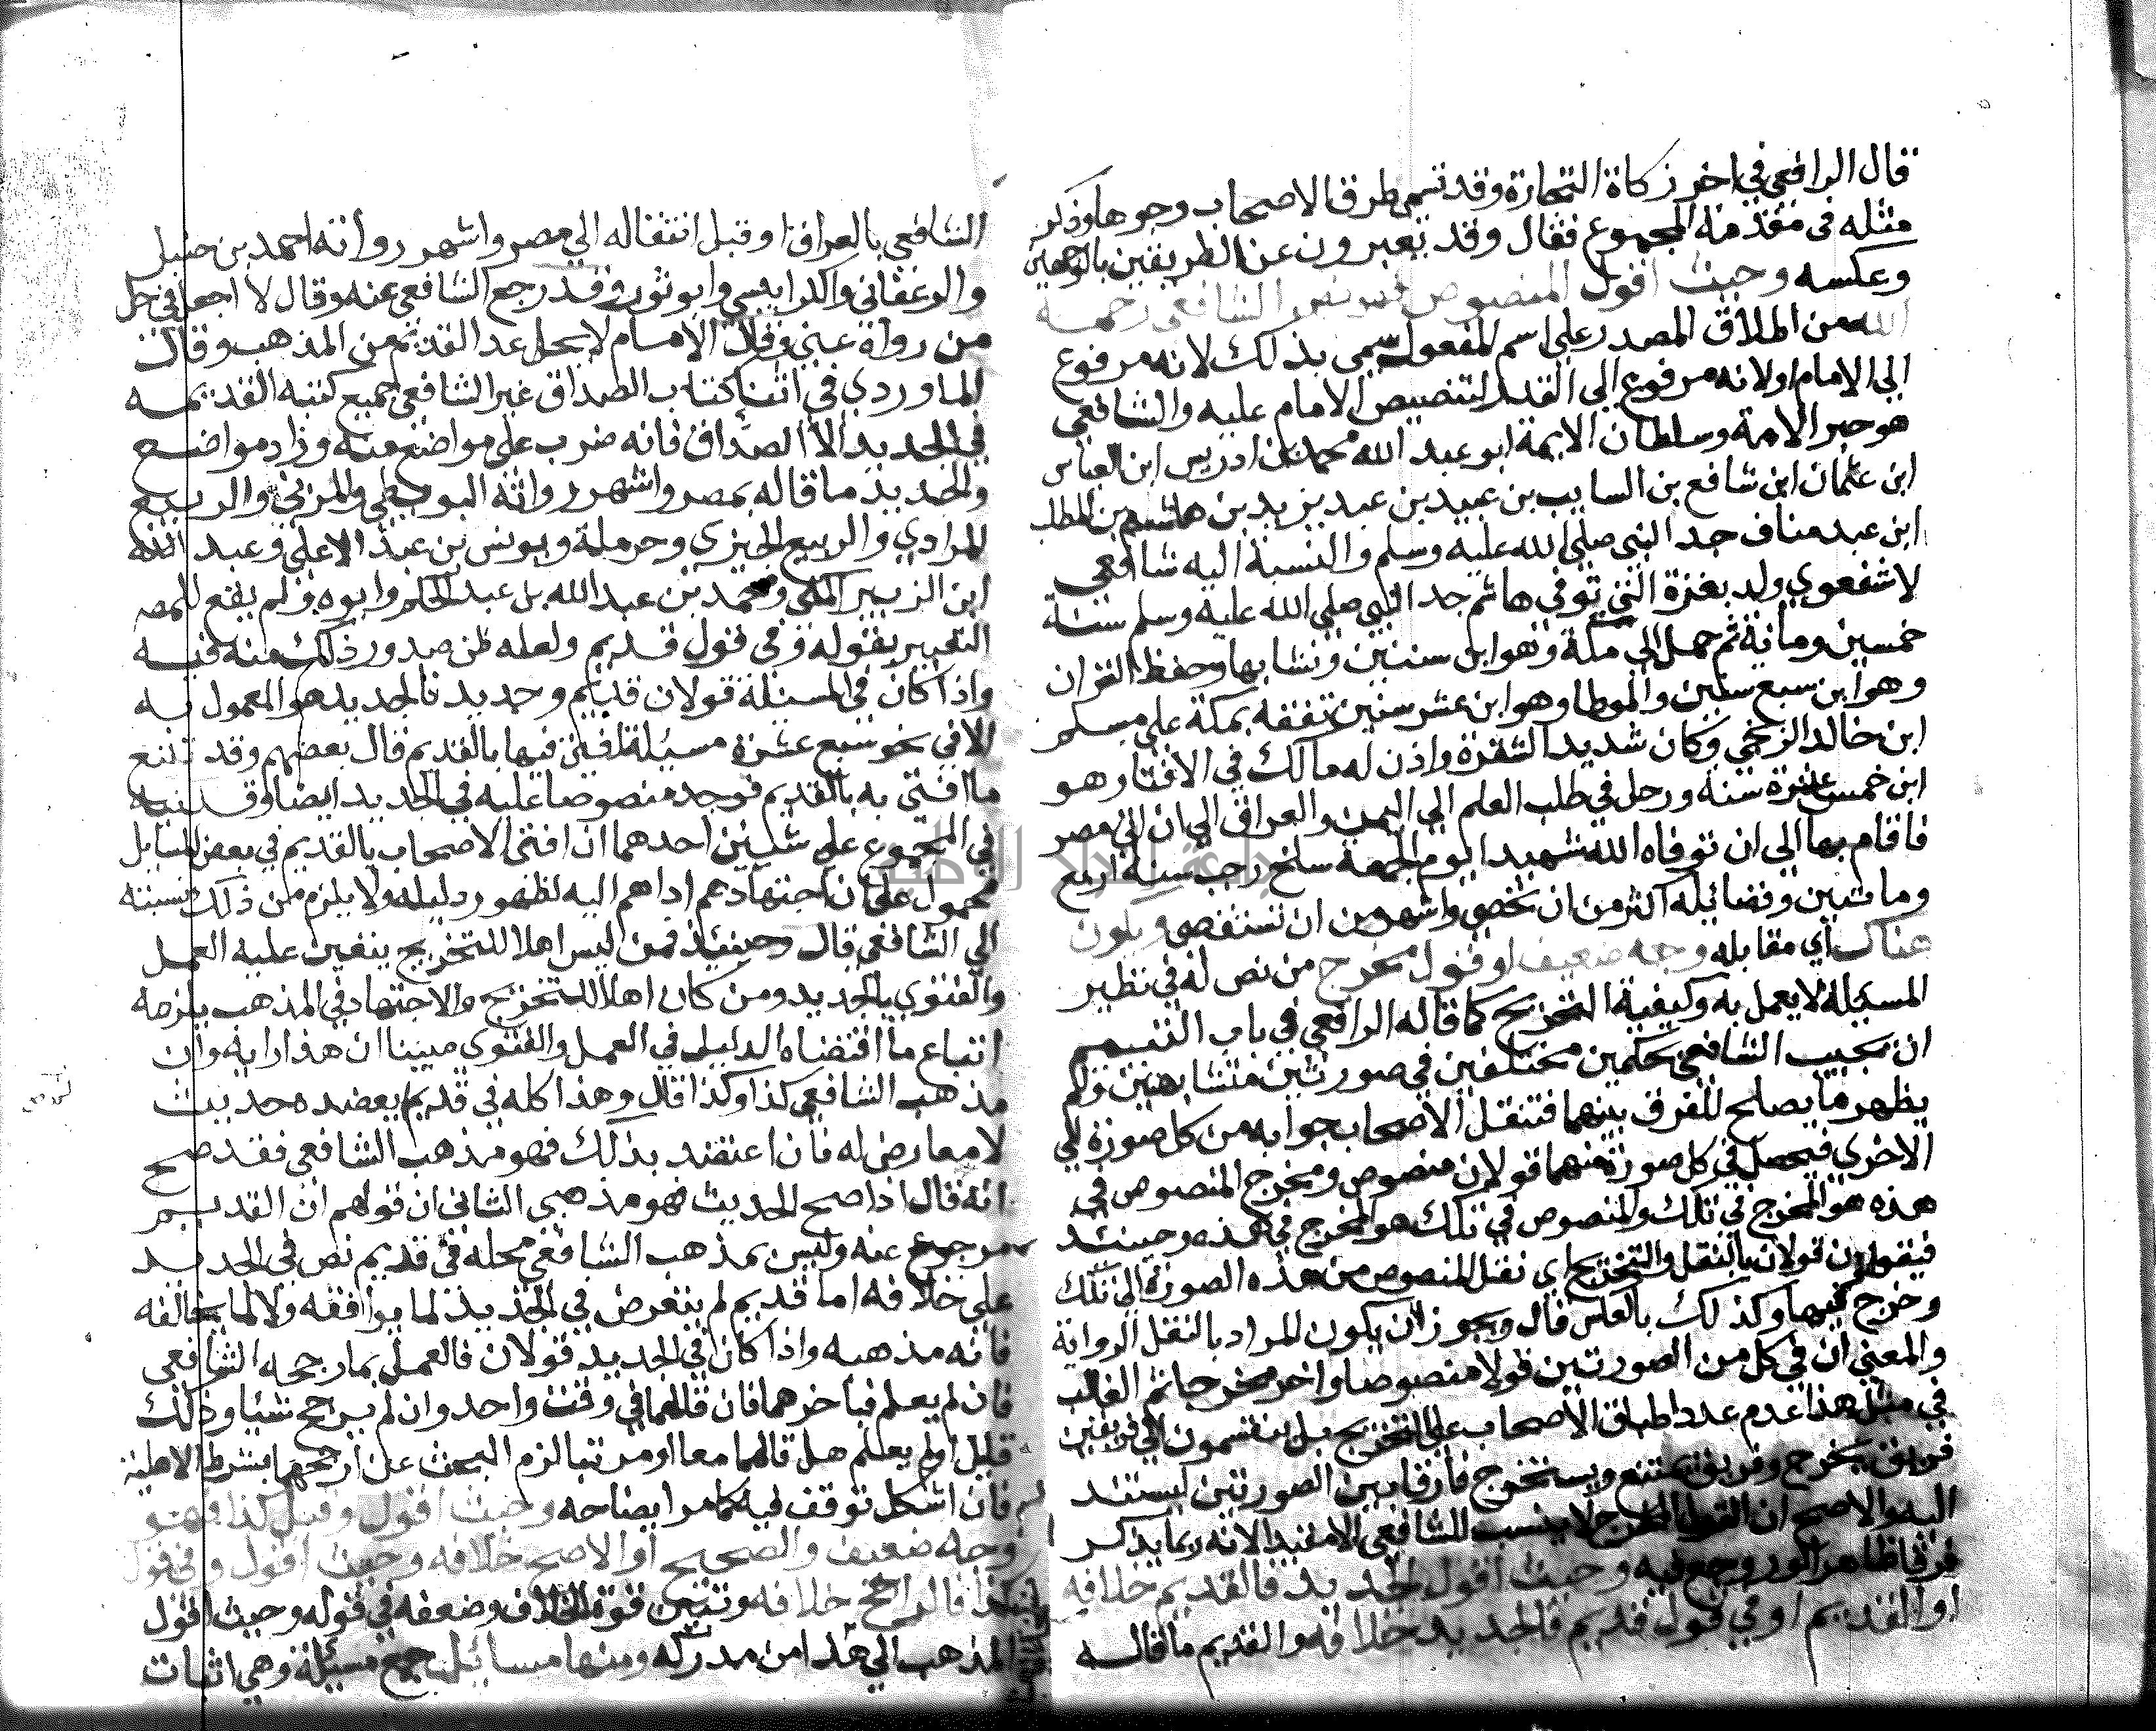 قال الرافعي في اخر زكاة التجارة وقد تسمى طرق الاصحاب وجوها وذكر
مثله في مقدمة المجموع فقال وقد يعبرون عن الطريقين بالوجهين
وعكسه وحيث اقول المنصوص فهو نص الشافعي رحمه
الله من اطلاق المصدر على اسم المفعول سمى بذلك لانه مرفوع
الى الامام اولانه مرفوع الى القدر لتنصيص الامام عليه والشافعي
هو حبر الامة وسلطان الايمة ابو عبد الله محمد بن ادريس ابن العباس
ابن عثمان ابن شافع بن السايب بن عبيد بن عبد يزيد بن هاشم بن المطلب
ابن عبد مناف جد النبي صلى الله عليه وسلم والنسبة اليه شافعي
لا شفعوي ولد بغزة التي توفي هاشم جد النبي صلى الله عليه وسلم سنة
خمسين ومائة ثم حمل الي مكة وهو ابن سنتين ونشا بها وحفظ القران
وهو ابن سبع سنين والموطا وهو ابن عشر سنين تفقه بمكة على مسلم
ابن خالد الزنجي وكان شديد الشقرة واذن له مالك في الافتا وهو
ابن خمس عشرة سنة ورحل في طلب العلم الي اليمن والعراق الي ان اتى مصر
فاقام بها الي ان توفاه الله شهيدا يوم الجمعة سلخ رجب سنة اربع
وماتين وفضائله اكثر من ان تحصى واشهر من ان تستقصى ويكون
هناك اي مقابله وجه ضعيف او قول مخرج من نص له في نظير
المسئلة لا يعمل به وكيفية التخريج كما قاله الرافعي في باب التيمم
ان يجيب الشافعي بحكمين مختلفين في صورتين متشابهتين ولم
يظهر ما يصلح للفرق بينهما فتنقل الاصحاب جوابه من كل صورة الي
الاخرى فيحصل في كل صورة منهما قولان منصوص ومخرج المنصوص في
هذه هو المخرج في تلك والمنصوص في تلك هو المخرج في هذه وحينئذ
فيقولون قولان بالنقل والتخريج اي نقل المنصوص من هذه الصورة الي تلك
وخرج فيها وكذلك بالعكس قال ويجوز ان يكون المراد بالنقل الرواية
والمعنى ان في كل من الصورتين قولا منصوصا واخر مخرجا ثم الغالب
في مثل هذا عدم عدد اطباق الاصحاب على التخريج بل ينقسمون الي فريقين
فريق يخرج وفريق يمتنع ويستخرج فارقا بين الصورتين ليستند
اليه والاصح ان القول المخرج لا ينسب للشافعي الا مقيدا لانه ربما يذكر
فرقا ظاهرا لو روجع فيه وحيث اقول الجديد فالقديم خلافه
او القديم او في قول قديم فالجديد خلافه والقديم ما قاله
الشافعي بالعراق او قبل انتقاله الي مصر واشهر رواته احمد بن حنبل
والزعفاني والكرابيسي وابو ثور وقد رجع الشافعي عنه وقال لا اجعل في حل
من رواه عني وقال الامام لا يحل عد القديم من المذهب وقال
الماوردي في اثنا كتاب الصداق غير الشافعي جميع كتبه القديمه
في الجديد الا الصداق فانه ضرب على مواضع منه وزاد مواضع
والجديد ما قاله بمصر واشهر رواته البويطي والمزني والربيع
المرادي والربيع الجيزي وحرملة ويونس بن عبد الاعلى وعبد الله
ابن الزبير المكي ومحمد بن عبد الله بن عبد الحكم وابوه ولم يقع للمص
التعبير بقوله وفي قول قديم ولعله ظن صدور ذلك منه فيه
واذا كان في المسئلة قولان قديم وجديد فالجديد هو المعمول به
الا في نحو سبع عشرة مسئلة افتى فيها بالقديم قال بعضهم وقد تتبع
ما افتى به بالقديم فوجد منصوصا عليه في الجديد ايضا وقد نبه
في المجموع على شيئين احدهما ان افتى الاصحاب بالقديم في بعض المسايل
محمول على ان اجتهادهم اداهم اليه لظهور دليله ولا يلزم من ذلك نسبته
الي الشافعي قال وحينئذ فمن ليس اهلا للتخريج يتعين عليه العمل
والفتوى بالجديد ومن كان اهلا للتخريج والاجتهاد في المذهب يلزمه
اتباع ما اقتضاه الدليل في العمل والفتوى مبينا ان هذا رايه وان
مذهب الشافعي كذا وكذا قال وهذا كله في قديم لم يعضده حديث
لا معارض له فان اعتضد بذلك فهو مذهب الشافعي فقد صح
انه قال اذا صح الحديث فهو مذهبي الثاني ان قولهم ان القديم
مرجوع عنه وليس بمذهب الشافعي محله في قديم نص في الجديد
على خلافه اما قديم لم يتعرض في الجديد لما يوافقه ولا لما يخالفه
فانه مذهبه واذا كان في الجديد قولان فالعمل بما رجحه الشافعي
فان لم يعلم فباخرهما فان قالهما في وقت واحد وان لم يرجح شيئا وذلك
قليل او لم يعلم هل قالهما معا او مرتبا لزم البحث عن ارجحهما بشرط الاهلية
فان اشكل توقف فيه كما مر ايضاحه وحيث اقول وقيل كذا فهو
وجه ضعيف والصحيح او الاصح خلافه وحيث اقول وفي قول
كذا فالراجح خلافه وتتبين قوة الخلاف وضعفه في قوله وحيث اقول
المذهب الي هذا من مدركه ومنها مسائل جمع مسئلة وهي اثبات